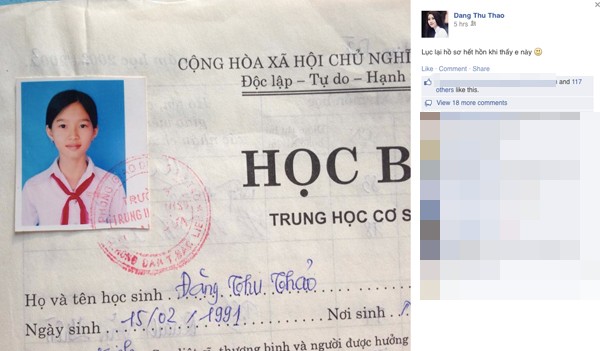 CỘNG HÒA XÃ HỘI CHỦ NGHĨ
Độc lập – Tự do – Hạnh
HỌC B
TRUNG HỌC CƠ S
Họ và tên học sinh . Đặng Thu Thảo
Ngày sinh . . . 15/02/1991 . . . Nơi sinh
thương binh và người được hưởng
Dang Thu Thao
5 hrs
Lục lại hồ sơ hết hồn khi thấy e này
Like · Comment · Share
and 117
others like this.
View 18 more comments